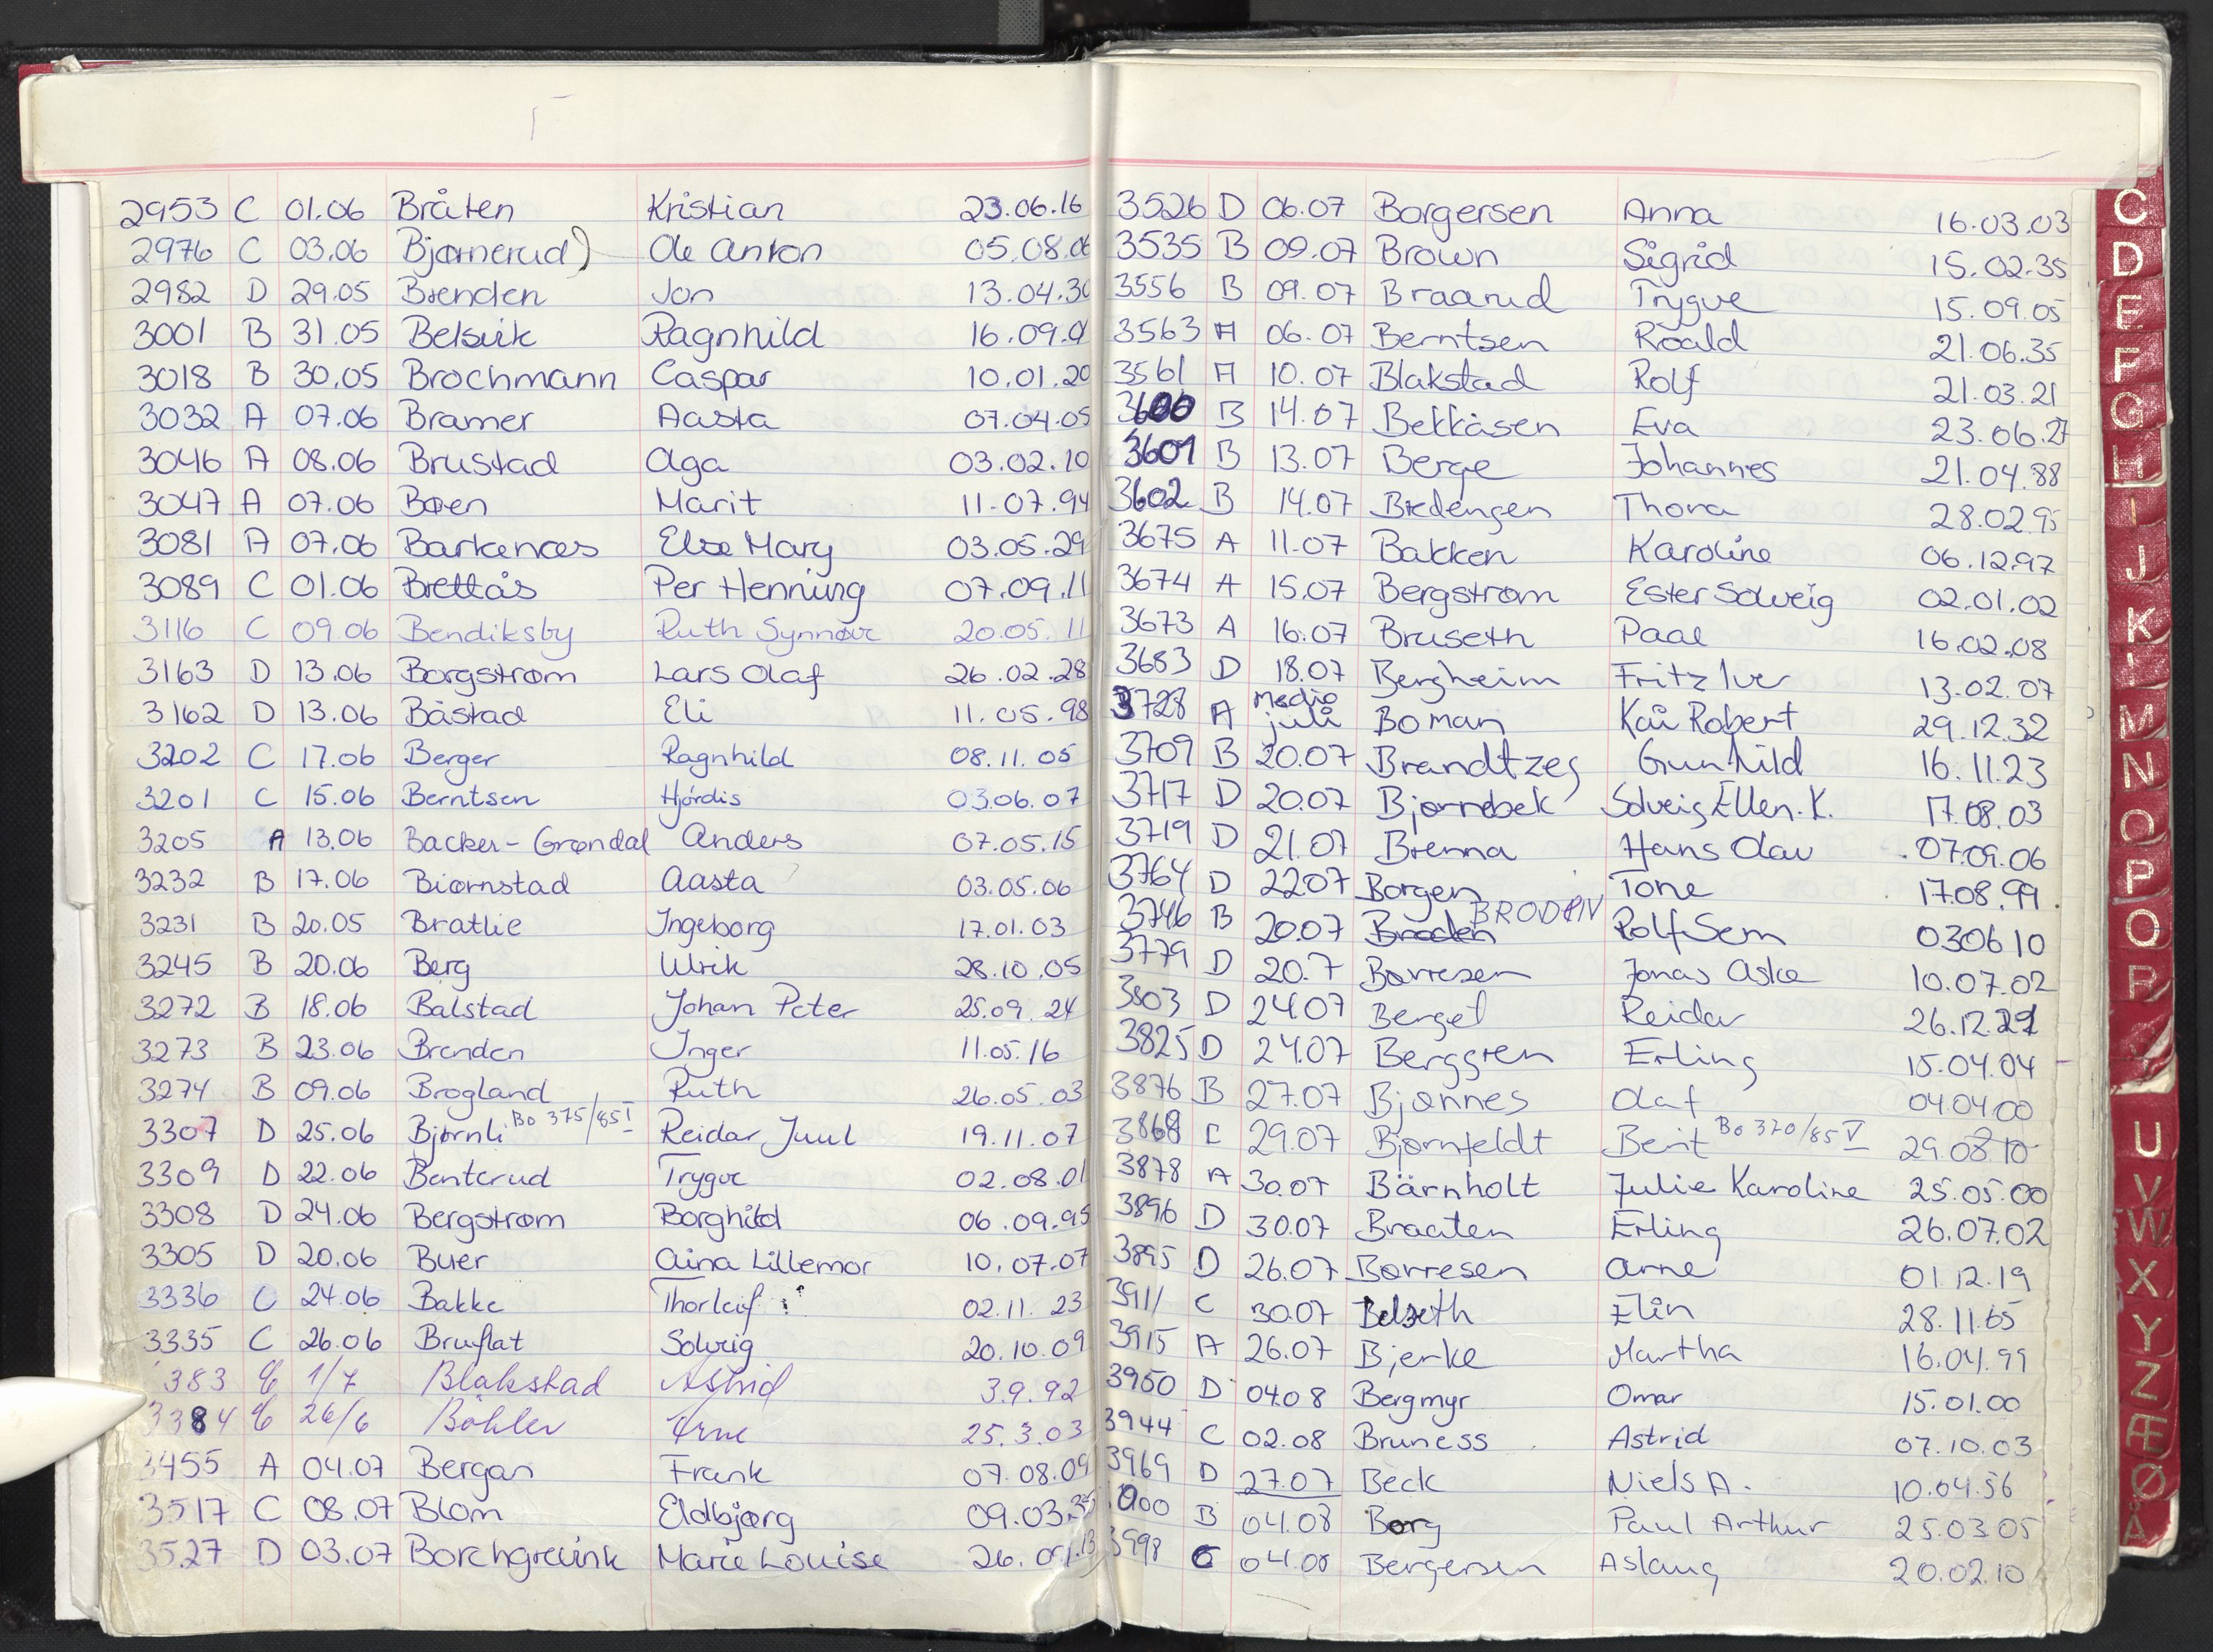 2953 C 01.06 Bråten Kristian 23.06.16
2976 C 03.06 Bjørnerud) Ole Anton 05.08.06
2982 D 29.05 Brenden Jon 13.04.30
3001 B 31.05 Belsvik Ragnhild 16.09.
3018 B 30.05 Brochmann Caspar 10.01.20
3032 A 07.06 Bramer Aasta 07.04.05
3046 A 08.06 Brustad Olga 03.02.10
3047 A 07.06 Bøen Marit 11-07.94
3081 A 07.06 Barkenæs Else Mary 03.05.29
3089 C 01.06 Brettås Per Henning 07.09.11
3116 C 09.06 Bendiksby Ruth Synnøve 20.05.11
3163 D 13.06 Borgstrøm Lars Olaf 26.02.28
3162 D 13.06 Båstad Eli 11.05.98
3202 C 17.06 Berger Ragnhild 08.11.05
3201 C 15.06 Berntsen Hjørdis 03.06.07
3205 A 13.06 Backer-Grøndal Anders 07.05.15
3232 B 17.06 Biørnstad Aasta 03.05.06
3231 B 20.05 Bratlie Ingeborg 17.01.03
3245 B 20.06 Berg Ulrik 28.10.05
3272 B 18.06 Balstad Johan Peter 25.09.24
3273 B 23.06 Brenden Inger 11.05.16
3274 B 09.06 Brogland Ruth 26.05.03
3307 D 25.06 Bjørnli Bo 375/85 I Reidar Juul 19.11.07
3309 D 22.06 Benterud Trygve 02.08.01
3308 D 24.06 Bergstrøm Borghild 06.09.95
3305 D 20.06 Buer Aina Lillemor 10.07.07
3336 C 24.06 Bakke Thorleif 02.11.23
3335 C 26.06 Bruflat Solveig 20.10.09
383 C 1/7 Blakstad Astrid 3.9.92
3384 C 26/6 Böhler Arne 25.3.03
3455 A 04.07 Bergan Frank 07.08.09
3517 C 08.07 Blom Eldbjørg 09.03.35
3527 D 03.07 Borchgrevink Marie Louise 26.01.13
3526 D 06.07 Borgersen Anna 16.03.03
3535 B 09.07 Brown Sigrid 15.02.35
3556 B 09.07 Braarud Trygve 15.09.05
3563 A 06.07 Berntsen Roald 21.06.35
3561 A 10.07 Blakstad Rolf 21.03.21
3600 B 14.07 Bekkåsen Eva 23.06.27
3601 B 13.07 Berge Johannes 21.04.88
3602 B 14.07 Bredengen Thora 28.02.95
3675 A 11.07 Bakken Karoline 06.12.97
3674 A 15.07 Bergstrøm Ester Solveig 02.01.02
3673 A 16.07 Bruseth Paal 16.02.08
3683 D 18.07 Bergheim Fritz Iver 13.02.07
3728 A Medio juli Boman Kai Robert 29.12.32
3709 B 20.07 Brandtzeg Gunhild 16.11.23
3717 D 20.07 Bjørnebek Solveig Ellen. K. 17.08.03
3719 D 21.07 Brenna Hans Olav 07.09.06
3764 D 22.07 Borgen Tone 17.08.99
3746 B 20.07 Broden BRODIN Rolf Sem 030610
3779 D 20.7 Børresen Jonas Aske 10.07.02
3803 D 24.07 Berget Reidar 26.12.21
3825 D 24.07 Berggren Erling 15.04.04
3876 B 27.07 Bjønnes Olaf 04.04.00
3868 C 29.07 Bjørnfeldt Berit Bo 370/85 V 29.08.10
3878 A 30.07 Bärnholt Julie Karoline 25.05.00
3896 D 30.07 Braaten Erling 26.07.02
3895 D 26.07 Børresen Arne 01.12.19
3911 C 30.07 Belseth Elin 28.11.65
3915 A 26.07 Bjerke Martha 16.04.99
3950 D 04.08 Bergmyr Omar 15.01.00
3944 C 02.08 Bruness Astrid 07.10.03
3969 D 27.07 Beck Niels A. 10.04.56
000 B 04.08 Borg Paul Arthur 25.03.05
3998 C 04.08 Bergersen Aslaug 20.02.10
C
D
E
F
G
H
I
J
K
L
M
N
O
P
Q
R
U
V
W
X
Y
Z
Æ
Ø
Å